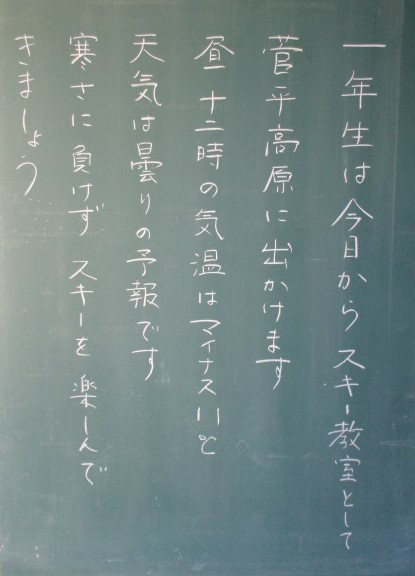 一年生は今日からスキー教室として
菅平高原に出かけます
昼十二時の気温はマイナス11℃
天気は曇りの予報です
寒さに負けずスキーを楽しんで
きましょう